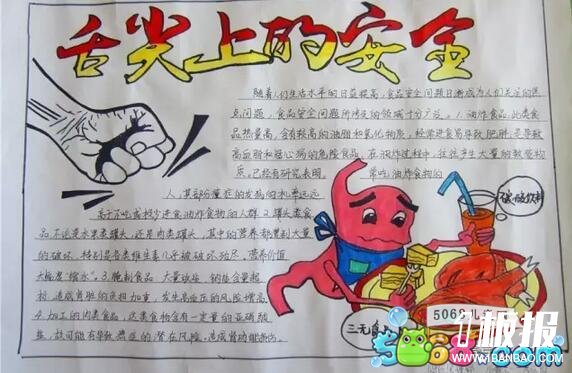 舌尖上的安全
随着人们生活水平的日益提高,食品安全问题日渐成为人们关注的焦
点问题,食品安全问题所涉及的领域十分广泛。1.油炸食品,此类食
品热量高,含有较高的油脂和氧化物质,经常进食易导致肥胖,是导致
高血脂和冠心病的危险食品。在油炸过程中,往往产生大量的致癌物
质,已经有研究表明, 常吃油炸食物的
人,其部分癌症的发病的机率远远
高于不吃或极少进食油炸食物的人群。2.罐头类食
品,不论是水果类罐头,还是肉类罐头,其中的营养都遭到大量
的破坏,特别是各类维生素几乎被破坏殆尽,营养价值
大幅度“缩水”。3.腌制食品,大量放盐,钠盐含量超
标,造成肾脏的负担加重,发生高血压的风险增高。
4.加工的肉类食品,这类食物含有一定量的亚硝酸
盐,故可能有导致癌症的潜在风险。造成肾功能
碳酸饮料
三无
5068儿
极报
5068.com
WWW.1BANBAO.COM